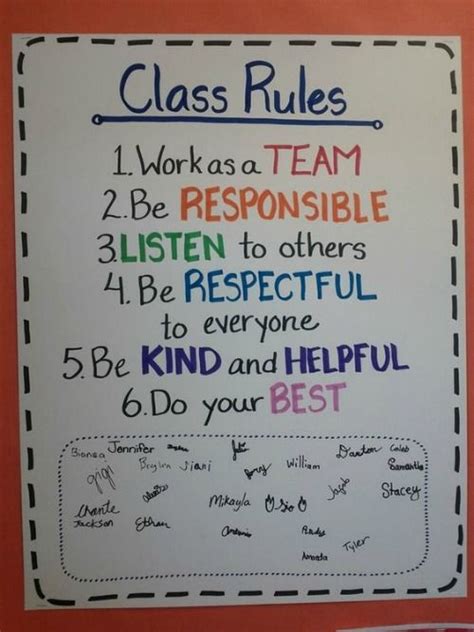 Class Rules
1. Work as a TEAM
2. Be RESPONSIBLE
3. LISTEN to others
4. Be RESPECTFUL
to everyone
5. Be KIND and HELPFUL
6. Do your BEST
Jennifer Danton Caleb
Bianca Jiani William Samantha
gigi
Mikayla Stacey
Chante
Jackson Ethan
Tyler
Amanda